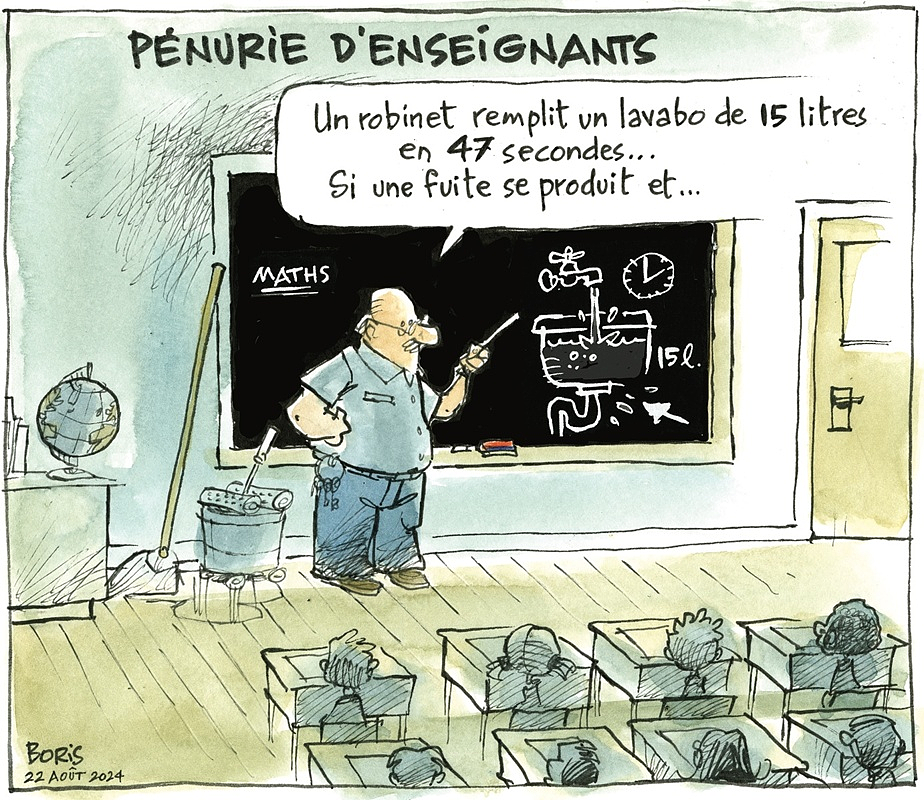 PÉNURIE D'ENSEIGNANTS
Un robinet remplit un lavabo de 15 litres
en 47 secondes...
Si une fuite se produit et...
MATHS
15 l.
BORIS
22 AOÛT 2024